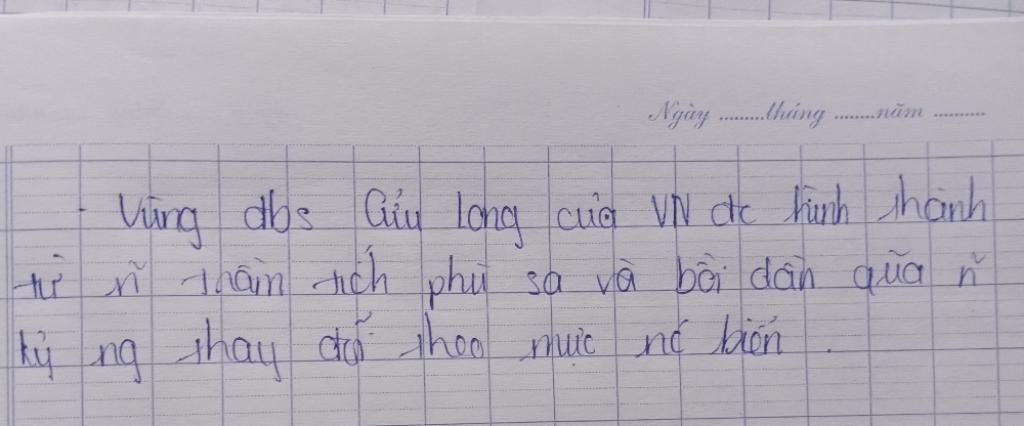 Ngày .........tháng ........năm ...........
- Vùng đbs Cửu Long của VN đc hình thành
từ n~ trầm tích phù sa và bồi dần qua n~
kỷ ng thay đổi theo mực nc biển .